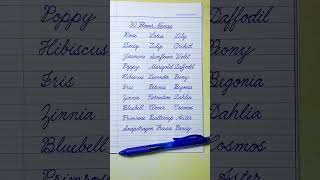 30 Flower Names
Rose Lotus Lily
Daisy Tulip Orchid
Jasmine Sunflower Violet
Poppy Marigold Daffodil
Hibiscus Lavender Peony
Iris Petunia Begonia
Zinnia Carnation Dahlia
Bluebell Clover Cosmos
Primrose Buttercup Aster
Snapdragon Freesia Pansy
Poppy Daffodil
Hibiscus Peony
Iris Begonia
Zinnia Dahlia
Bluebell Cosmos